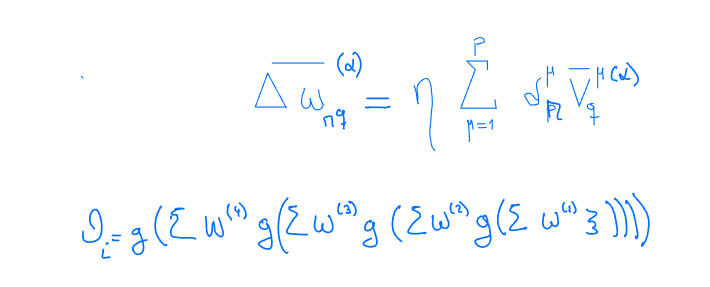 Δw̅ₙq^(α) = η Σ_{μ=1}^{P} δₙ^μ V̅_q^{μ(α)}
O_i = g(Σ w^(4) g(Σ w^(3) g(Σ w^(2) g(Σ w^(1) ξ))))